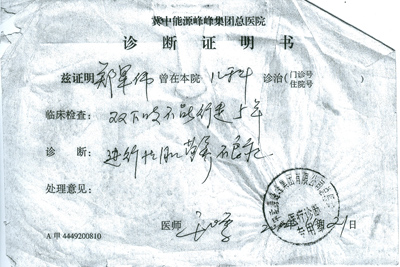 冀中能源峰峰集团总医院
诊断证明书
兹证明 郑军伟 曾在本院 儿科 诊治（门诊号 住院号
临床检查：双下肢不能行走5年
诊断：进行性肌营养不良症
处理意见：
医师
日
A.甲 4449200810
医疗诊断
专用章